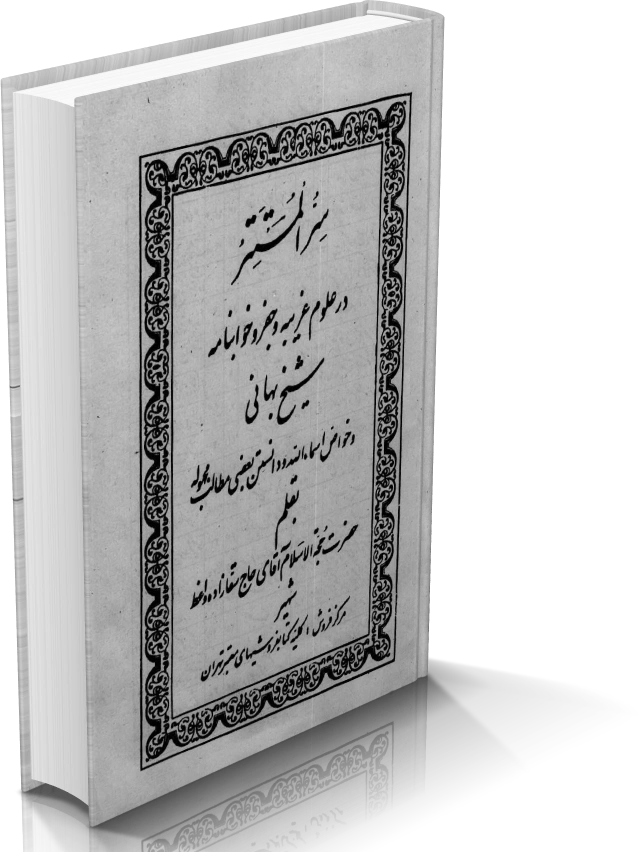 سِرُّ الْمُسْتَتِرْ
در علوم غریبه و جفر و خوابنامه
شیخ بهائی
و خواص اسماءالله و دانستن بعضی مطالب مجهوله
بقلم
حضرت حجّة الاسلام آقای حاج سقازاده واعظ
شهیر
مرکز فروش : کلیه کتابفروشیهای معتبر تهران